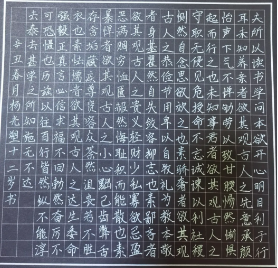 夫所以读书学问本欲开心明目利于行
耳未知养亲者欲其观古人之先意承颜
怡声下气不惮劬劳以致甘腝惕然惭惧
起而行之也未知事君者欲其观古人之
守职无侵见危授命不忘诚谏以利社稷
恻然自念思欲效之也素骄奢者欲其观
古人之恭俭节用卑以自牧礼为教本敬
者身基瞿然自失敛容抑志也素鄙吝者
欲其观古人之贵义轻财少私寡欲忌盈
恶满赒穷恤匮赧然悔耻积而能散也素
暴悍者欲其观古人之小心黜己齿弊舌
存含垢藏疾尊贤容众苶然沮丧若不胜
衣也素怯懦者欲其观古人之达生委命
强毅正直立言必信求福不回勃然奋厉不
可恐慑也历兹以往百行皆然纵不能淳
去泰去甚学之所知施无不达
辛丑春月杨光塑十二岁书